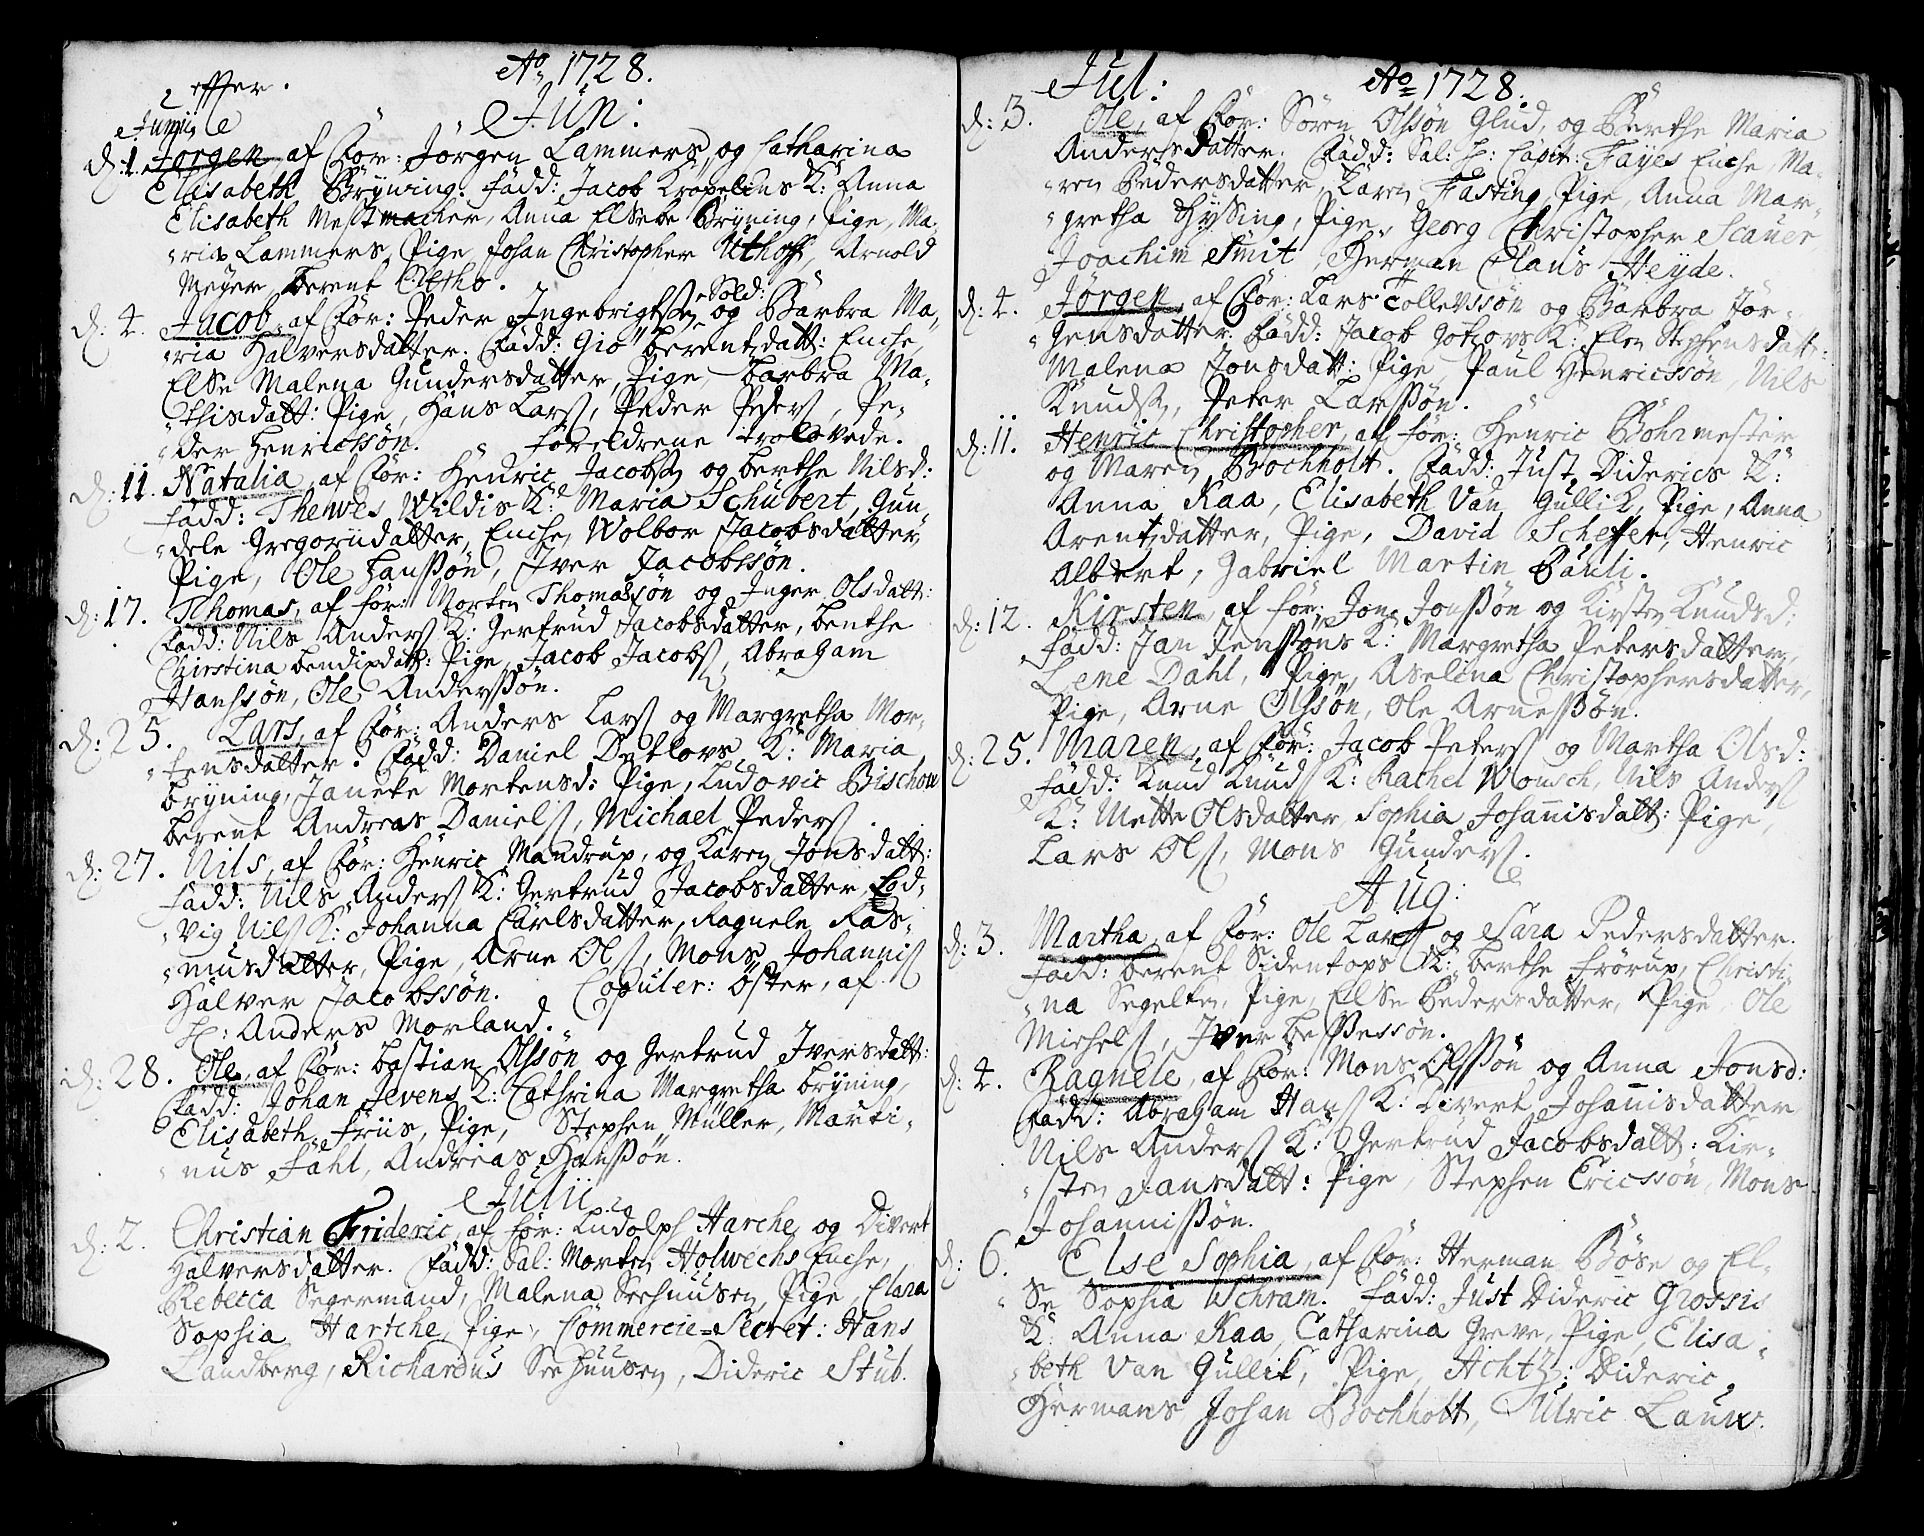 Ao 1728.
effter.
Junii
Jun:
d: 1. Jörgen, af For: Jörgen Lammers, og Catharina
Elisabeth Bryning. Fadd: Jacob Kröpeliens K: Anna
Elisabeth Mestmacher, Anna Elsebe Bryning, Pige, Ma-
-ria Lammers, Pige, Johan Christopher Uthoff, Arnold
Meyer, Berent
d: 4. Jacob, af For: Peder Ingebrigts Sold: og Barbra Ma-
-ria Halversdatter. Fadd: Giö Berentzdatt: Enche,
Else Malena Gundersdatter, Pige, Barbra Ma-
-thisdatt: Pige, Hans Lars, Peder Peders, Pe-
-der Henricssön. Foreldrene trolovede.
d: 11. Natalia, af For: Henric Jacobs og Berthe Nilsd:
Fadd: Thewes Wildis K: Maria Schubert, Gun-
-dele Gregoriidatter, Enche, Wolbor Jacobsdatter,
Pige, Ole Hanssön, Iver Jacobssön.
d: 17. Thomas, af For: Morten Thomassön og Inger Olsdatt:
Fadd: Nils Anders K: Gertrud Jacobsdatter, Benthe
Christina Bendixdatt: Pige, Jacob Jacobs, Abraham
Hanssön, Ole Anderssön.
d: 25. Lars, af For: Anders Lars og Margretha Mor-
-tensdatter. Fadd: Daniel Detlovs K: Maria
Bryning, Janeke Mortensd: Pige, Ludovic Bischow
Berent Andreas Daniels, Michael Peders.
d: 27. Nils, af For: Henric Mandrup, og Karen Jonsdatt:
Fadd: Nils Anders K: Gertrud Jacobsdatter, Lod-
-vig Nils K: Johanna Carlsdatter, Ragnele Ras-
-musdatter, Pige, Arne Ols, Mons Johannis
Halver Jacobssön. Copuler: öster, af
H: Anders Morland.
d: 28. Ole, af For: Bastian Olssön og Gertrud Iversdatt:
Fadd: Johan Jevens K: Cathrina Margretha Bryning,
Elisabeth Friis, Pige, Stephen Müller, Marti-
-nus Fahl, Andreas Hanssön.
Julii
d: 2. Christian Frideric, af For: Ludolph Harche og Divert
Halversdatter. Fadd: Sal: Morten Holwechs Enche,
Rebecca Segermand, Malena Seehuusen, Pige, Clara
Sophia Hartche, Pige, Commercie=Secret: Hans
Landberg, Richardus Seehuusen, Dideric Stub.
Jul: Ao 1728.
d: 3. Ole, af For: Sören Olssön Glud, og Berthe Maria
Andersdatter. Fadd: Sal: H: Capit: Fayes Enche, Ma-
-ren Pedersdatter, Karen Fasting, Pige, Anna Mar-
-gretha Hysing, Pige, Georg Christopher Scaver
Joachim Smit, Herman Claus Heyde.
d: 4. Jörgen, af For: Lars Tollevssön og Barbra Jör-
-gensdatter. Fadd: Jacob K: Elen Stephensdatt:
Malena Jonsdatt: Pige, Paul Henricssön, Nils
Knuds, Peter Larssön.
d: 11. Henric Christopher, af For: Henric Bohrmester
og Maren Bochholt. Fadd: Just Diderics K:
Anna Kaa, Elisabeth Van Gullik, Pige, Anna
Arentzdatter, Pige, David Scheffer, Henric
Albert, Gabriel Martin Pauli.
d: 12. Kirsten, af For: Jon Jonssön og Kirsten Knudsd:
Fadd: Jan Jenssöns K: Margretha Petersdatter,
Lene Dahl, Pige, Aselina Christophersdatter,
Pige, Arne Olssön, Ole Arnessön.
d: 25. Maren, af For: Jacob Peters og Martha Olsd:
Fadd: Knud Knuds K: Rachel Wonsch, Nils Anders
K: Mette Olsdatter, Sophia Johannisdatt: Pige,
Lars Ols, Mons Gunders.
Aug:
d: 3. Martha, af For: Ole Lars og Sara Pedersdatter.
Fadd: Berent Sidentops K: Berthe Frörup, Christi-
-na Segelken, Pige, Else Pedersdatter, Pige, Ole
Michels, Iver Bessessön.
d: 4. Ragnele, af For: Mons Olssön og Anna Jonsd:
Fadd: Abraham Hans K: Divert Johannisdatter
Nils Anders K: Gertrud Jacobsdatt: Kir-
-sten Jansdatt: Pige, Stephen Ericssön, Mons
Johannissön.
d: 6. Else Sophia, af For: Herman Böse og El-
-se Sophia Schram. Fadd: Just Dideric Grossis
K: Anna Kaa, Catharina Greve, Pige, Elisa-
-beth Van Gullik, Pige, Achtz: Dideric
Hermans, Johan Bochholt, Ulric Lauw.